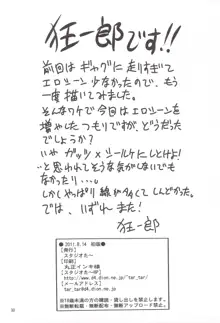 狂一郎です!!
前回はギャグに走りすぎて
エロシーン少なかったので、もう
一度描いてみました。
そんなワケで今回はエロシーンを
増やしたつもりですが、どうだった
でしょうか?
いや ガッツ×シールケにしとけよ!
と思われてそうな気がしないでも
なかったり…
しかしやっぱり線が多くてしんどかった。
では、いずれまた!
狂一郎
●2011.8.14 初版●
【発行】
スタジオたー
【印刷】
丸正インキ様
【スタジオたーHP】
http://www.d4.dion.ne.jp/~tar_tar/
【メールアドレス】
tar_tar@d4.dion.ne.jp
※18歳未満の方の購読・貸し出しを禁ずる。
無断複製・無断配布・無断アップロード禁止。